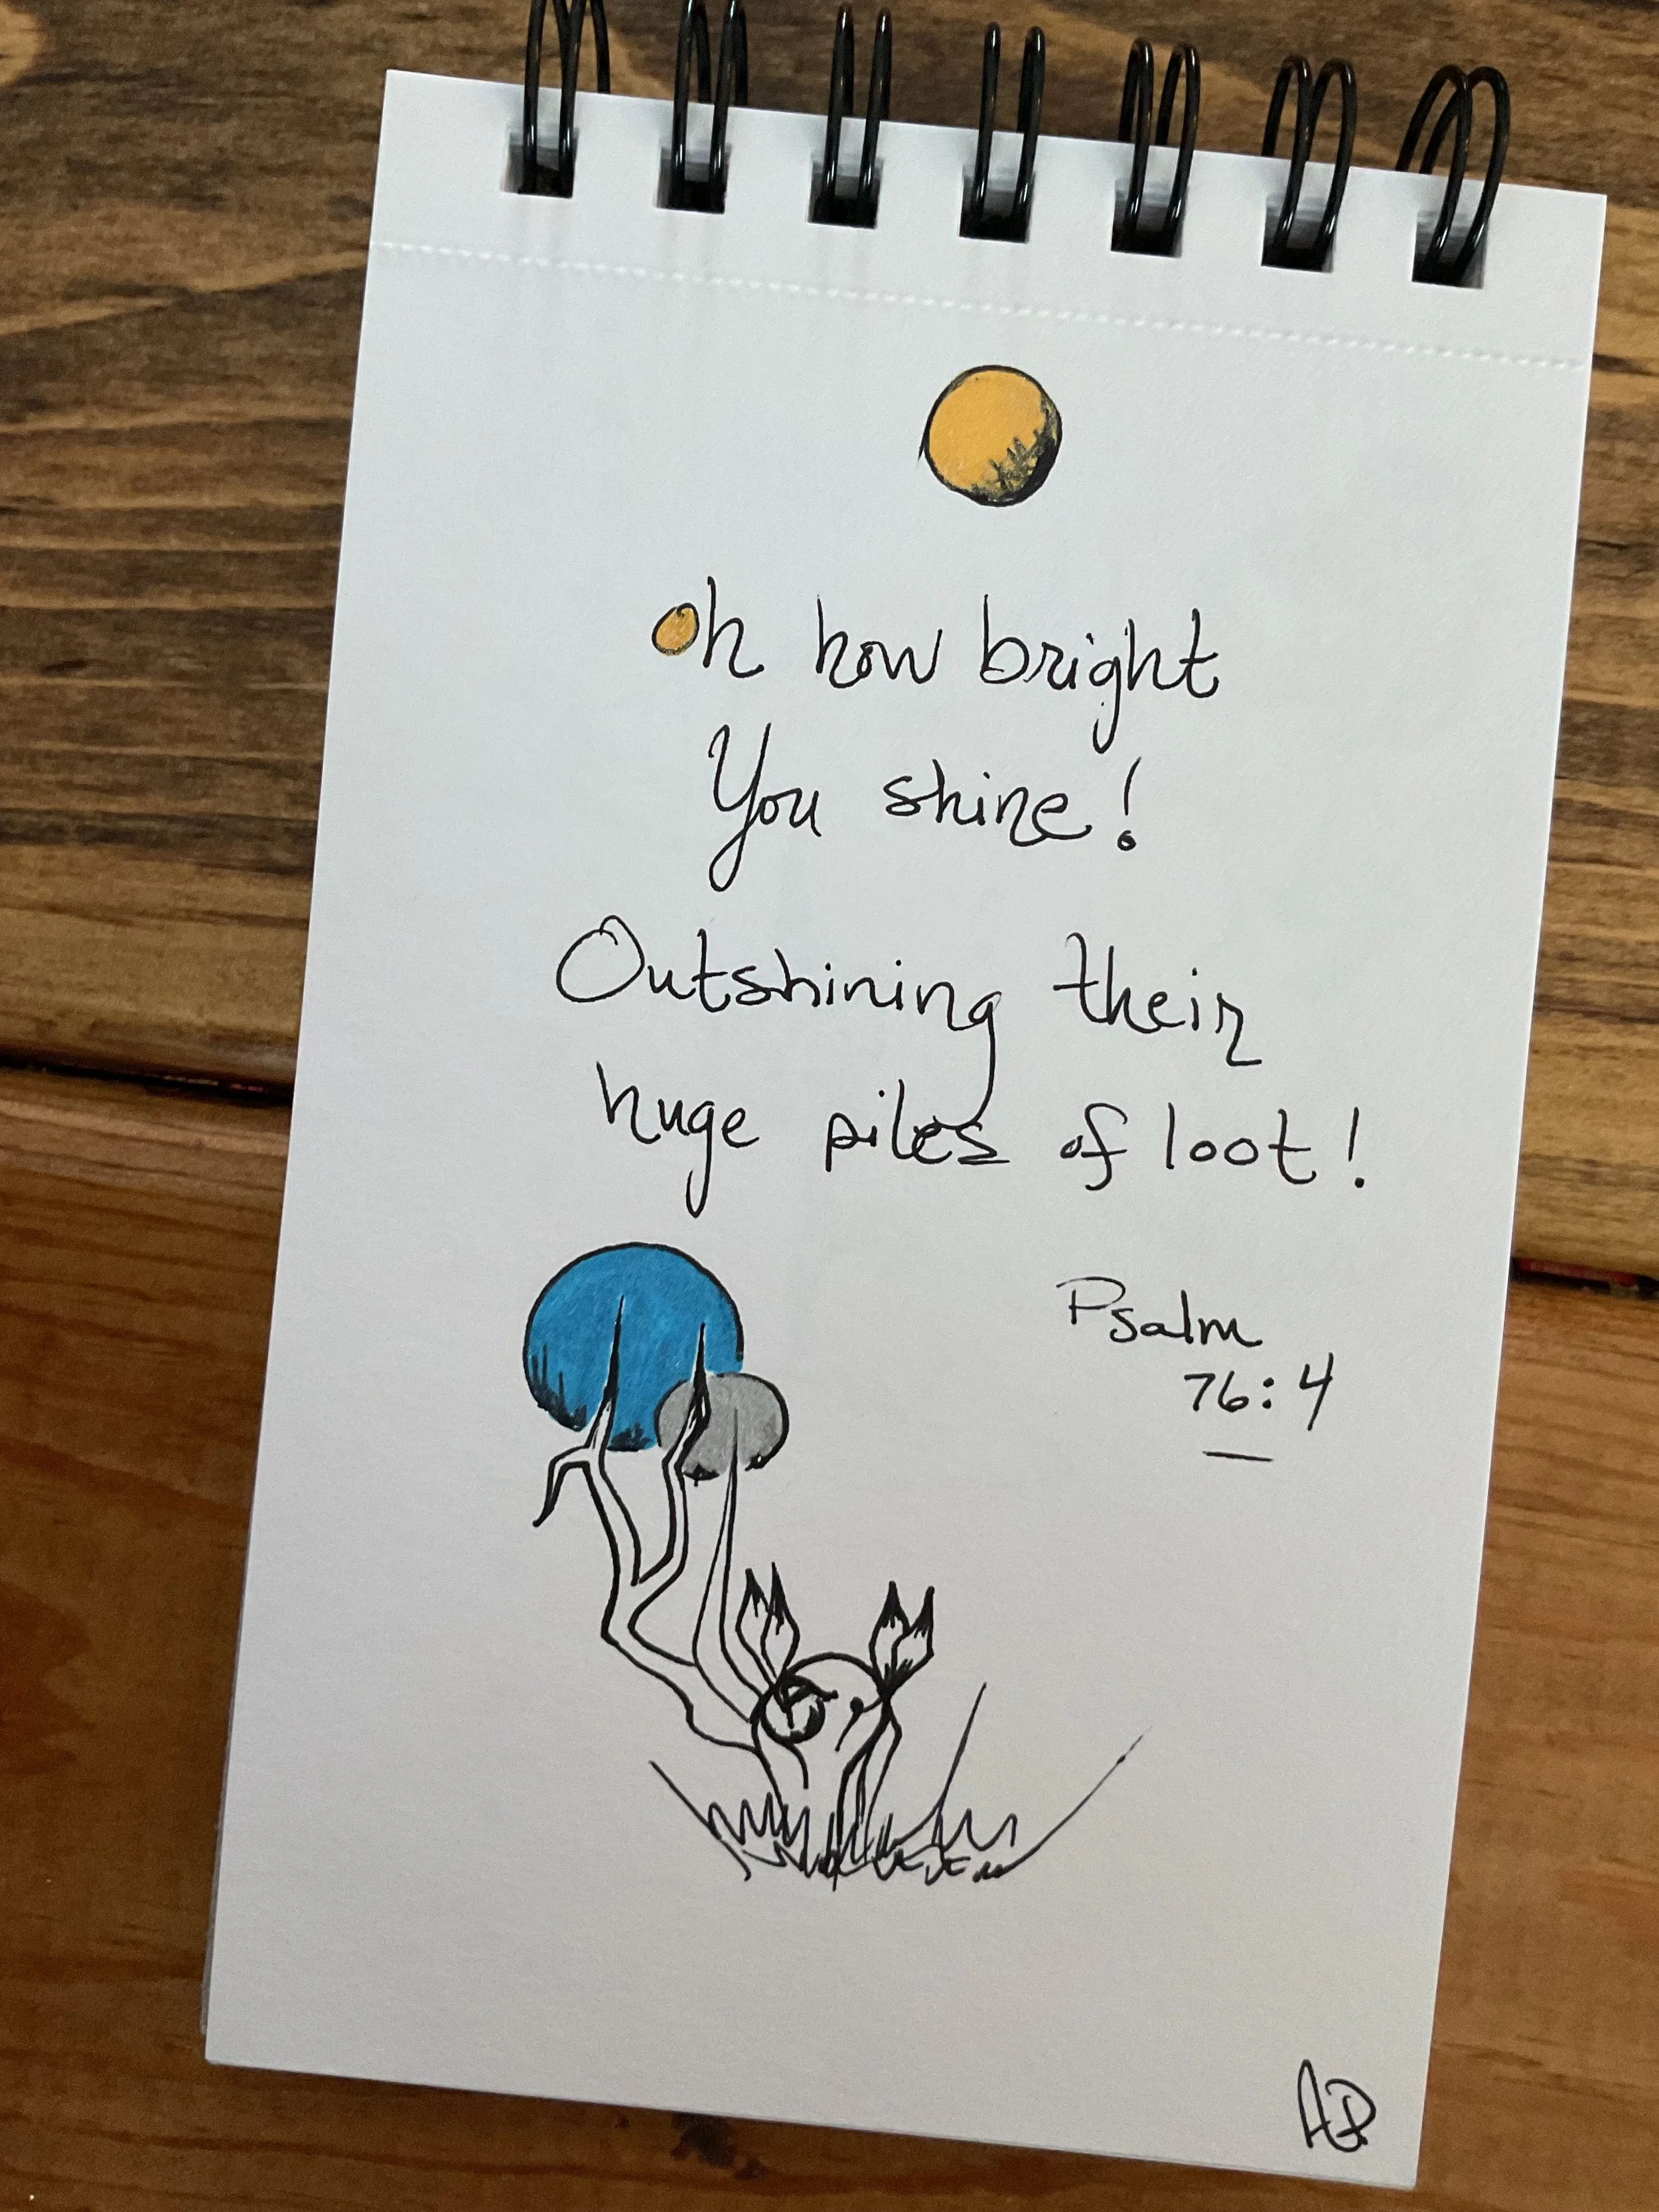 Oh how bright
You shine!
Outshining their
huge piles of loot!
Psalm
76:4